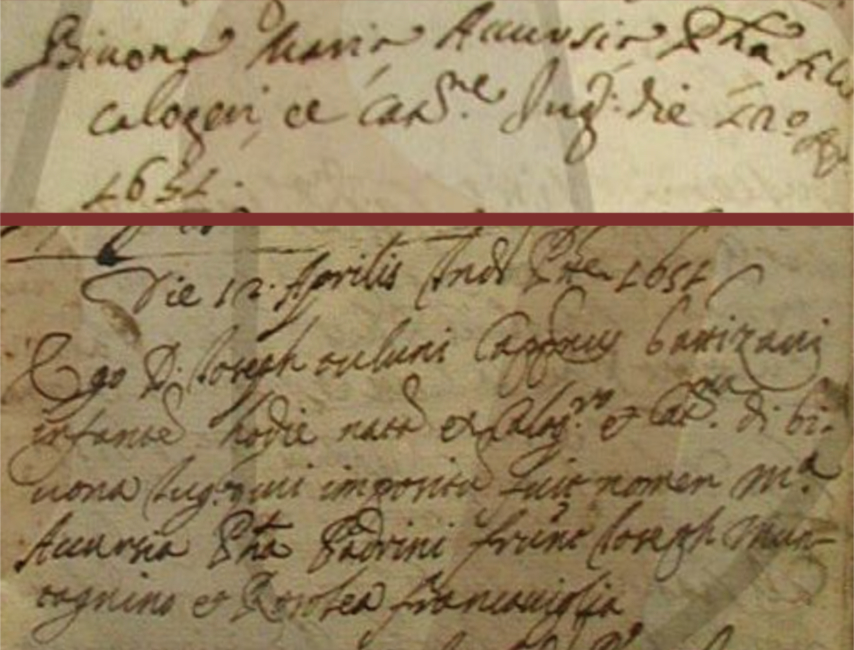 Bivona Maria Accursia Pta filia
Calogeri et Cat.ne Jug: die 12 Ap.
1651.
Die 12. Aprilis Ind. Pte 1651
Ego D. Joseph Cappnus battizavi
infante hodie nata ex Calog.ro et Cat.na di bi-
vona Jug: cui imposita fuit nomen M.a
Accursia Pta Padrini frunt Joseph Mun-
cagnino et Dorotea francaviglia